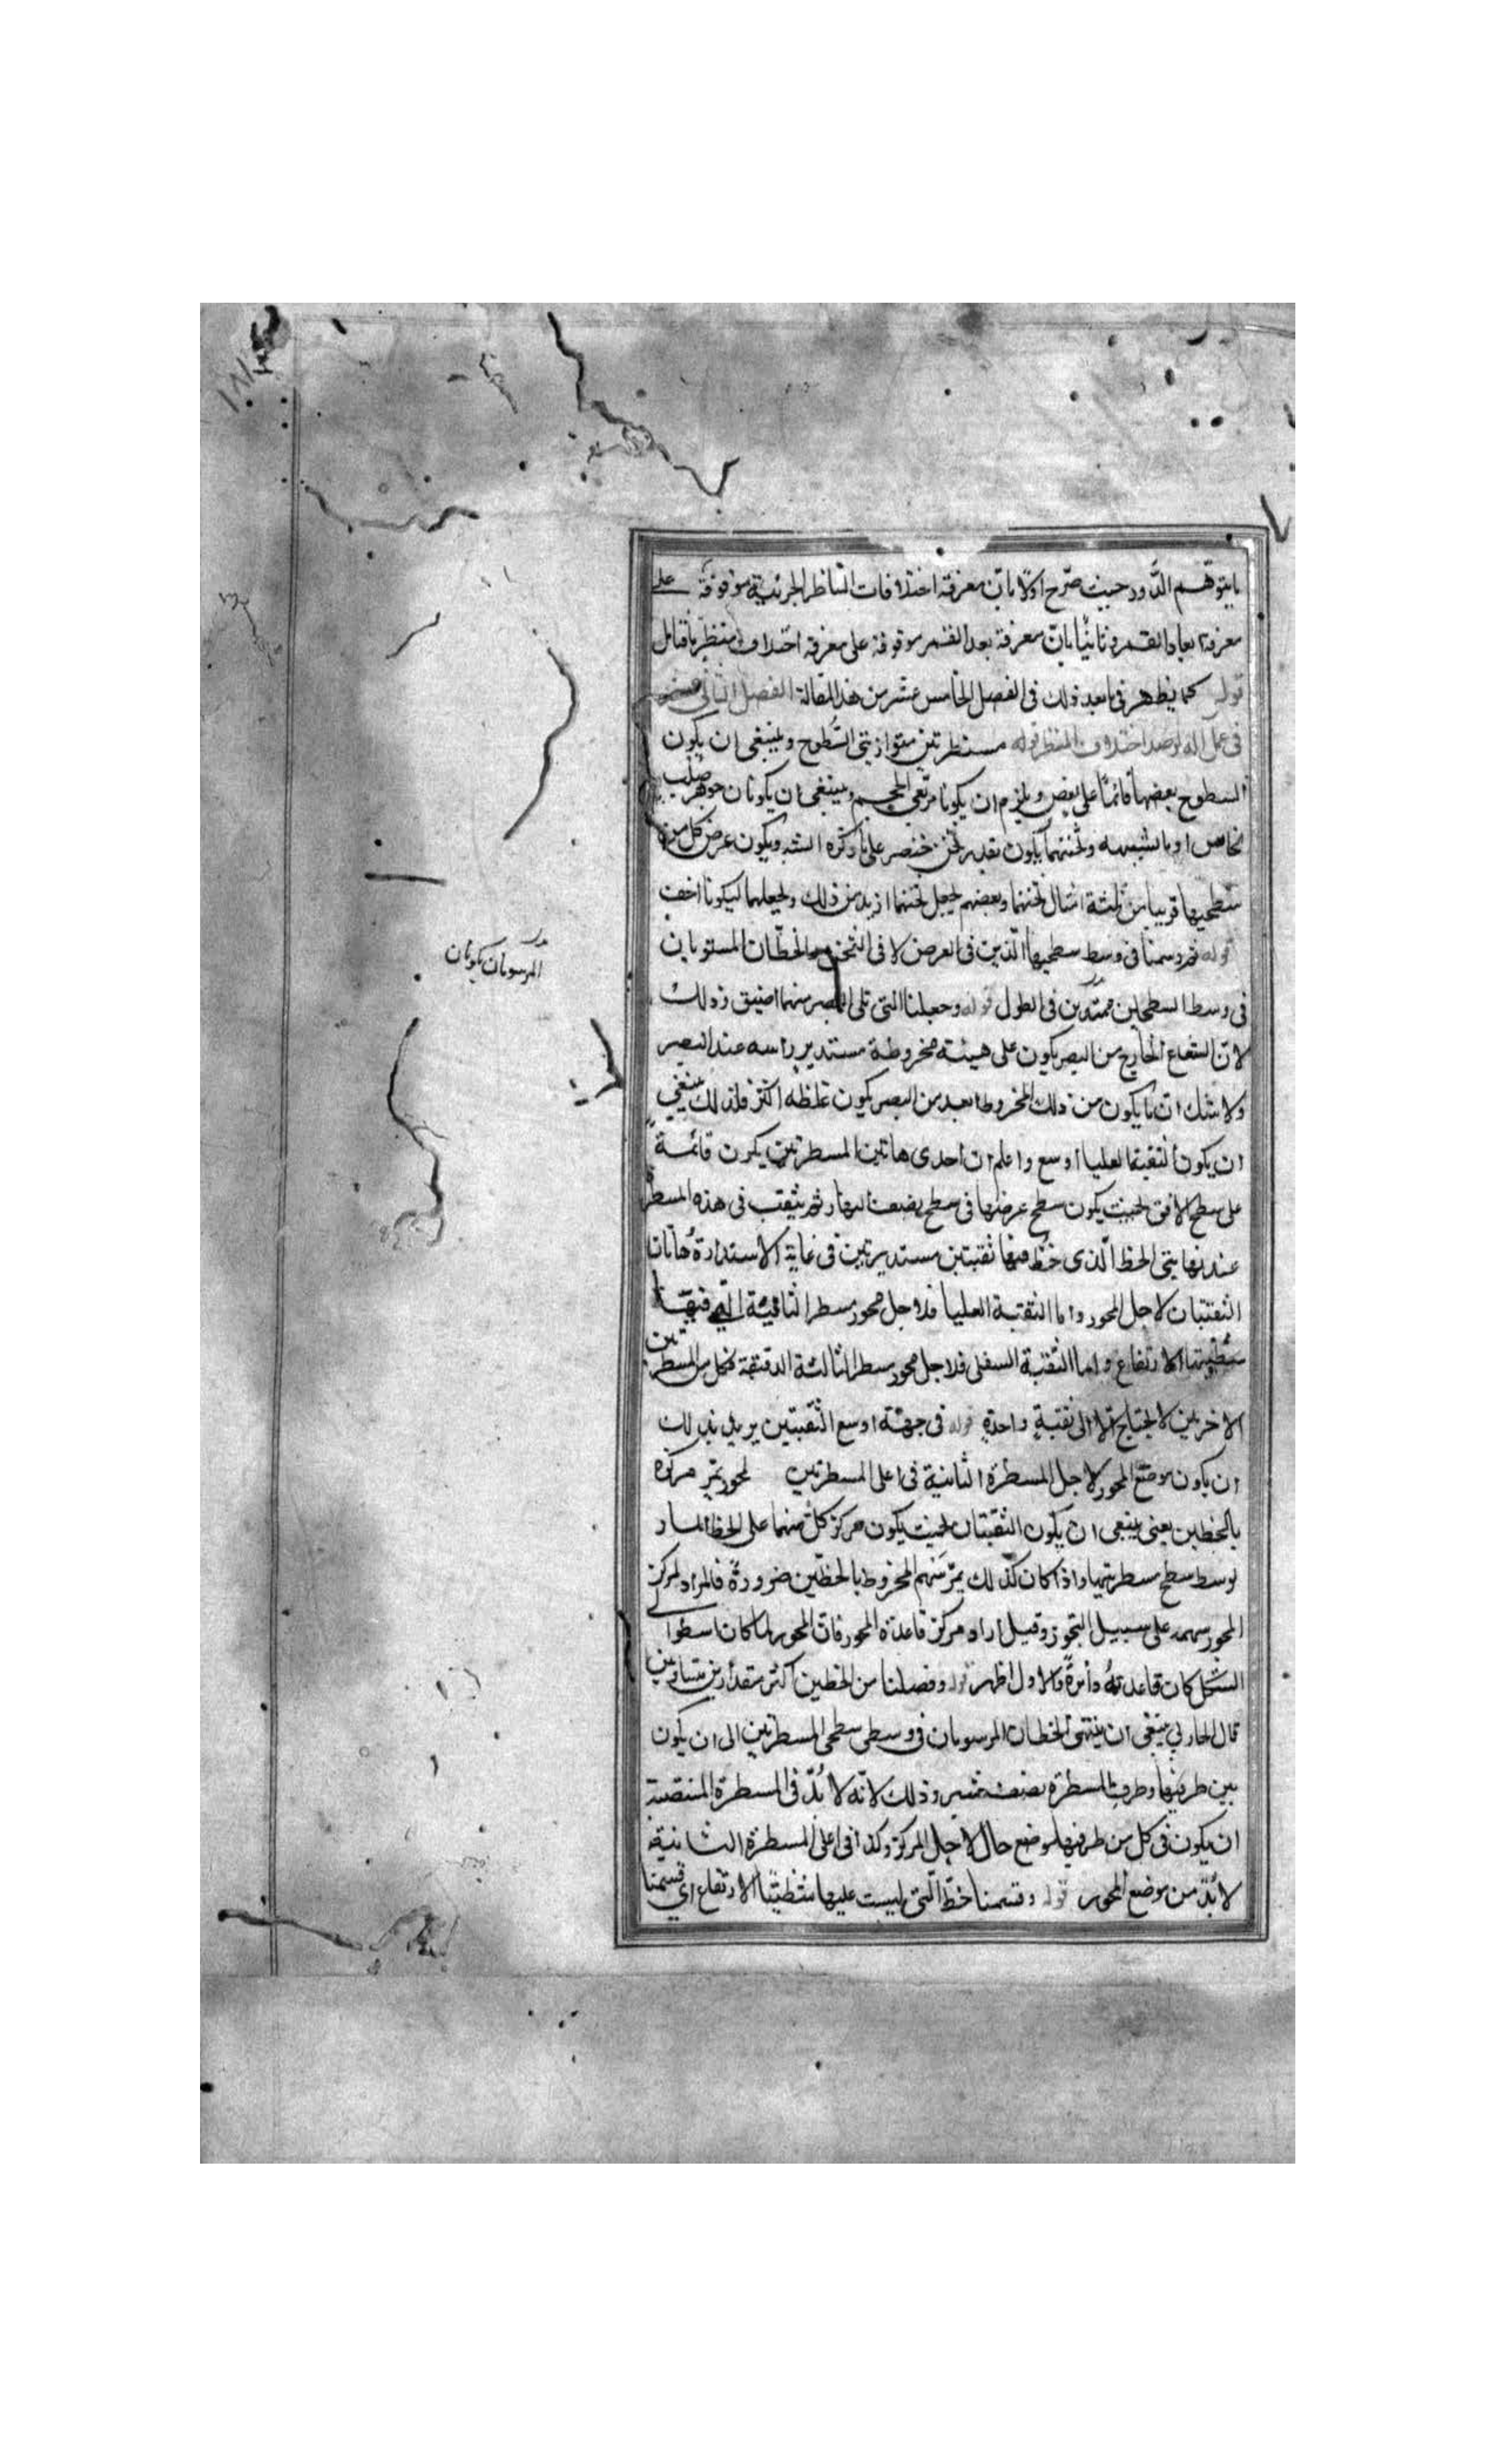 ما يتوهّم الدَّور حيث صرّح اولًا بانّ معرفة اختلافات المناظر الجزئية موقوفة على
معرفة ابعاد القمر وثانيًا بانّ معرفة بعد القمر موقوفة على معرفة اختلاف منظرٍ ما قابل
قوله كما يظهر فى ما بعد ذلك فى الفصل الخامس عشر من هذه المقالة الفصل الثانى عشر
فى عمل اله لرصد اختلاف المنظر قوله مسطرتين متوازيتى السُّطوح وينبغى ان يكون
السطوح بعضها قائمًا على بعض ويلزم ان يكونا مربّعى الحجم وينبغى ان يكونا من جوهر صُلب
نحاس او ما اشبهه وثخنهما يكون بقدر ثخن خنصر على ما ذكره الشه ويكون عرض كل من
سطحيها قريبا من ثلثة امثال ثخنهما وبعضهم يجعل ثخنهما ازيد من ذلك ولجعلهما ليكونا اخف
قوله ثم رسمنا فى وسط سطحيها الّذين فى العرض لا فى الثخن الخطّان المستويان
فى وسط السطحين ممتدّين فى الطول قوله وجعلنا التى تلى البصر منهما اضيق وذلك
لانّ الشعاع الخارج من البصر يكون على هيئة مخروطة مستدير راسه عند البصر
ولا شك انّ ما يكون من ذلك المخروط ابعد من البصر يكون غلظه اكثر فلذلك ينبغى
ان يكون الثقبة العليا اوسع واعلم ان احدى هاتين المسطرتين يكون قائمة
على سطح الافق بحيث يكون سطح عرضها فى سطح نصف النهار ثم يثقب فى هذه المسطرة
عند نهايتى الخط الّذى خُطّ فيها ثقبتين مستديرتين فى غاية الاستدارة وهاتان
الثقبتان لاجل المحور واما الثقبة العليا فلاجل محور مسطر الثانية التى فيها
شظيتا الارتفاع واما الثقبة السفلى فلاجل محور مسطر الثالثة الدقيقة فكل من المسطرتين
الاخريين لا يحتاج الّا الى ثقبةٍ واحدةٍ قوله فى جهة اوسع الثقبتين يريد بذلك
ان يكون موضع المحور لاجل المسطرة الثانية فى اعلى المسطرتين لمحور يمّر مركزه
بالخطين يعنى ينبغى ان يكون الثقبتان بحيث يكون مركز كلّ منهما على الخط المار
بوسط سطح مسطرتيها واذا كان كذلك يمّر سَهم المخروط بالخطّين ضرورةً فالمراد بمركز
المحور سهمه على سبيل التجوز وقيل اراد مركز قاعدة المحور فان المحور لما كان اسطوانى
الشكل كان قاعدته دائرةً والاول اظهر قوله وفصلنا من الخطين اكثر مقدارين متساويين
قال الحاربي ينبغى ان ينتهى الخطان المرسومان فى وسطى سطحى المسطرتين الى ان يكون
بين طرفيها وطرف المسطرة نصف شبر وذلك لانّه لا بُدّ فى المسطرة المنتصبة
ان يكون فى كل من طرفيها موضع خال لاجل المركز وكذا فى اعلى المسطرة الثانية
لا بُدّ من موضع المحور قوله وقسمنا خطّ الّتى ليست عليها شظيتا الارتفاع اى قسمنا
المرسومان يكونان